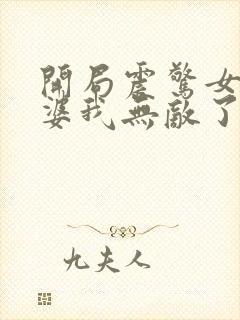 開局震驚女
婆我無敵了
九夫人